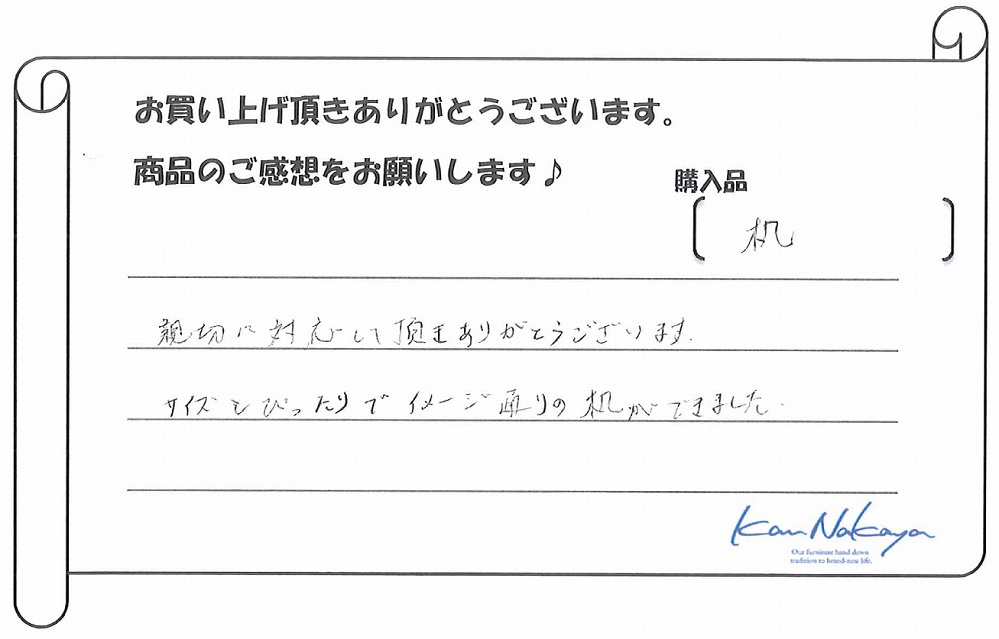 お買い上げ頂きありがとうございます。
商品のご感想をお願いします♪
購入品
机
親切に対応して頂きありがとうございます.
サイズもぴったりでイメージ通りの机ができました.
KanNakaya
Our furniture hand down
tradition to brand-new life.